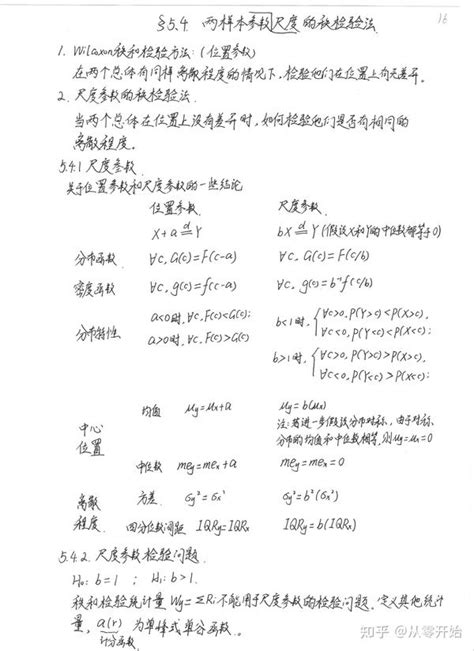 §5.4. 两样本参数尺度的秩检验法. 16
1. Wilcoxon秩和检验方法: (位置参数)
在两个总体有同样离散程度的情况下, 检验他们在位置上有无差异.
2. 尺度参数的秩检验法.
当两个总体在位置上没有差异时, 如何检验他们是否有相同的
离散程度.
5.4.1 尺度参数.
关于位置参数和尺度参数的一些结论
位置参数. 尺度参数.
X+a d= Y bX d= Y (假设X和Y的中位数都等于0)
分布函数. ∀c, G(c)=F(c-a) ∀c, G(c)=F(c/b)
密度函数 ∀c, g(c)=f(c-a) ∀c, g(c)=b⁻¹f(c/b)
分布特性. a<0时, ∀c, F(c)<G(c); b<1时, {∀c>0, P(Y>c)<P(X>c),
a>0时, ∀c, F(c)>G(c) ∀c<0, P(Y<c)<P(X<c);
b>1时, {∀c>0, P(Y>c)>P(X>c),
∀c<0, P(Y<c)>P(X<c);
均值 μy=μx+a μy=b(μx)
中心 注: 若进一步假设分布对称, 由于对称,
位置 分布的均值和中位数相等, 则μy=μx=0
中位数 mey=mex+a mey=mex=0
离散 方差. σy²=σx² σy²=b²(σx²)
程度. 四分位数间距 IQRy=IQRx IQRy=b(IQRx)
5.4.2. 尺度参数检验问题.
H₀: b=1 ; H₁: b>1.
秩和检验统计量 Wy=ΣRi不能用于尺度参数的检验问题. 定义其他统计
量, a(r) 为单峰式计分函数.
计分函数
知乎 @从零开始